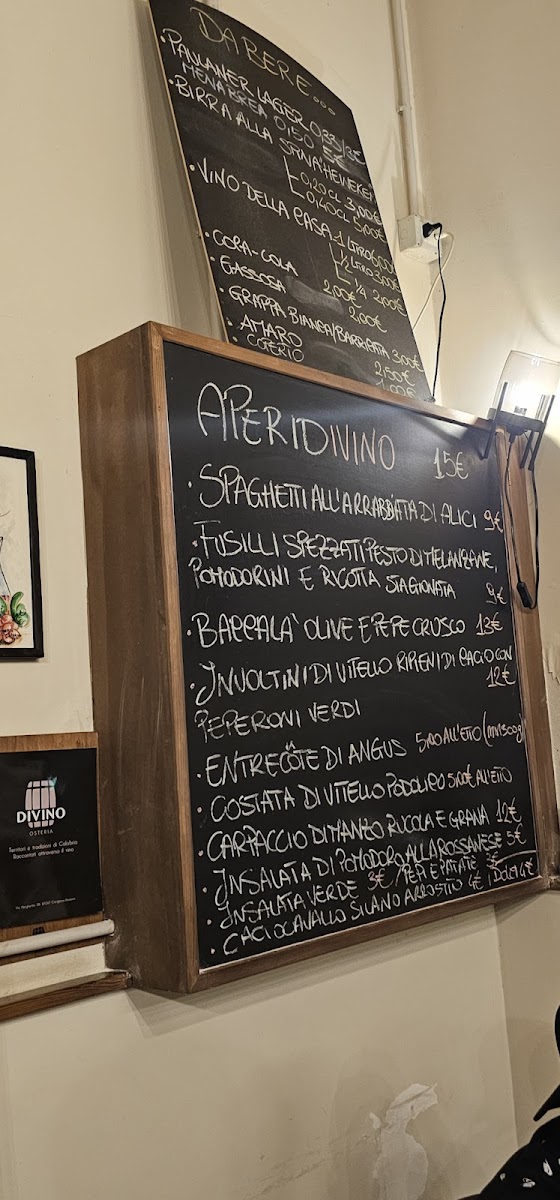 DA BERE...
• PAULANER LAGER 0,33/3€
MENABREA 0,50 5€
• BIRRA ALLA SPINA "HEINEKEN
0,20CL 3,00€
0,40CL 5,00€
• VINO DELLA CASA 1 LITRO 6,00€
½ LITRO 3,00€
¼ 2,00€
• COCA-COLA 2,00€
• GASSOSA 2,00€
• GRAPPA BIANCA/BARRICATA 3,00€
• AMARO 2,50€
• COPERTO 1,00€
APERIDIVINO 15€
• SPAGHETTI ALL'ARRABBIATA DI ALICI 9€
• FUSILLI SPEZZATI PESTO DI MELANZANE,
POMODORINI E RICOTTA STAGIONATA 9€
• BACCALA' OLIVE E PEPE CRUSCO 13€
• INVOLTINI DI VITELLO RIPIENI DI CACIO CON
PEPERONI VERDI 12€
• ENTRECÔTE DI ANGUS 5,00 ALL'ETTO (min 300g)
• COSTATA DI VITELLO PODOLICO 5,00€ ALL'ETTO
• CARPACCIO DI MANZO RUCOLA E GRANA 12€
• INSALATA DI POMODORO ALLA ROSSANESE 5€
• INSALATA VERDE 3€ / PEPI E PATATE 5€
• CACIOCAVALLO SILANO ARROSTITO 4€ | Dolci 4€
DIVINO
OSTERIA
Territori e tradizioni di Calabria
Raccontati attraverso il vino